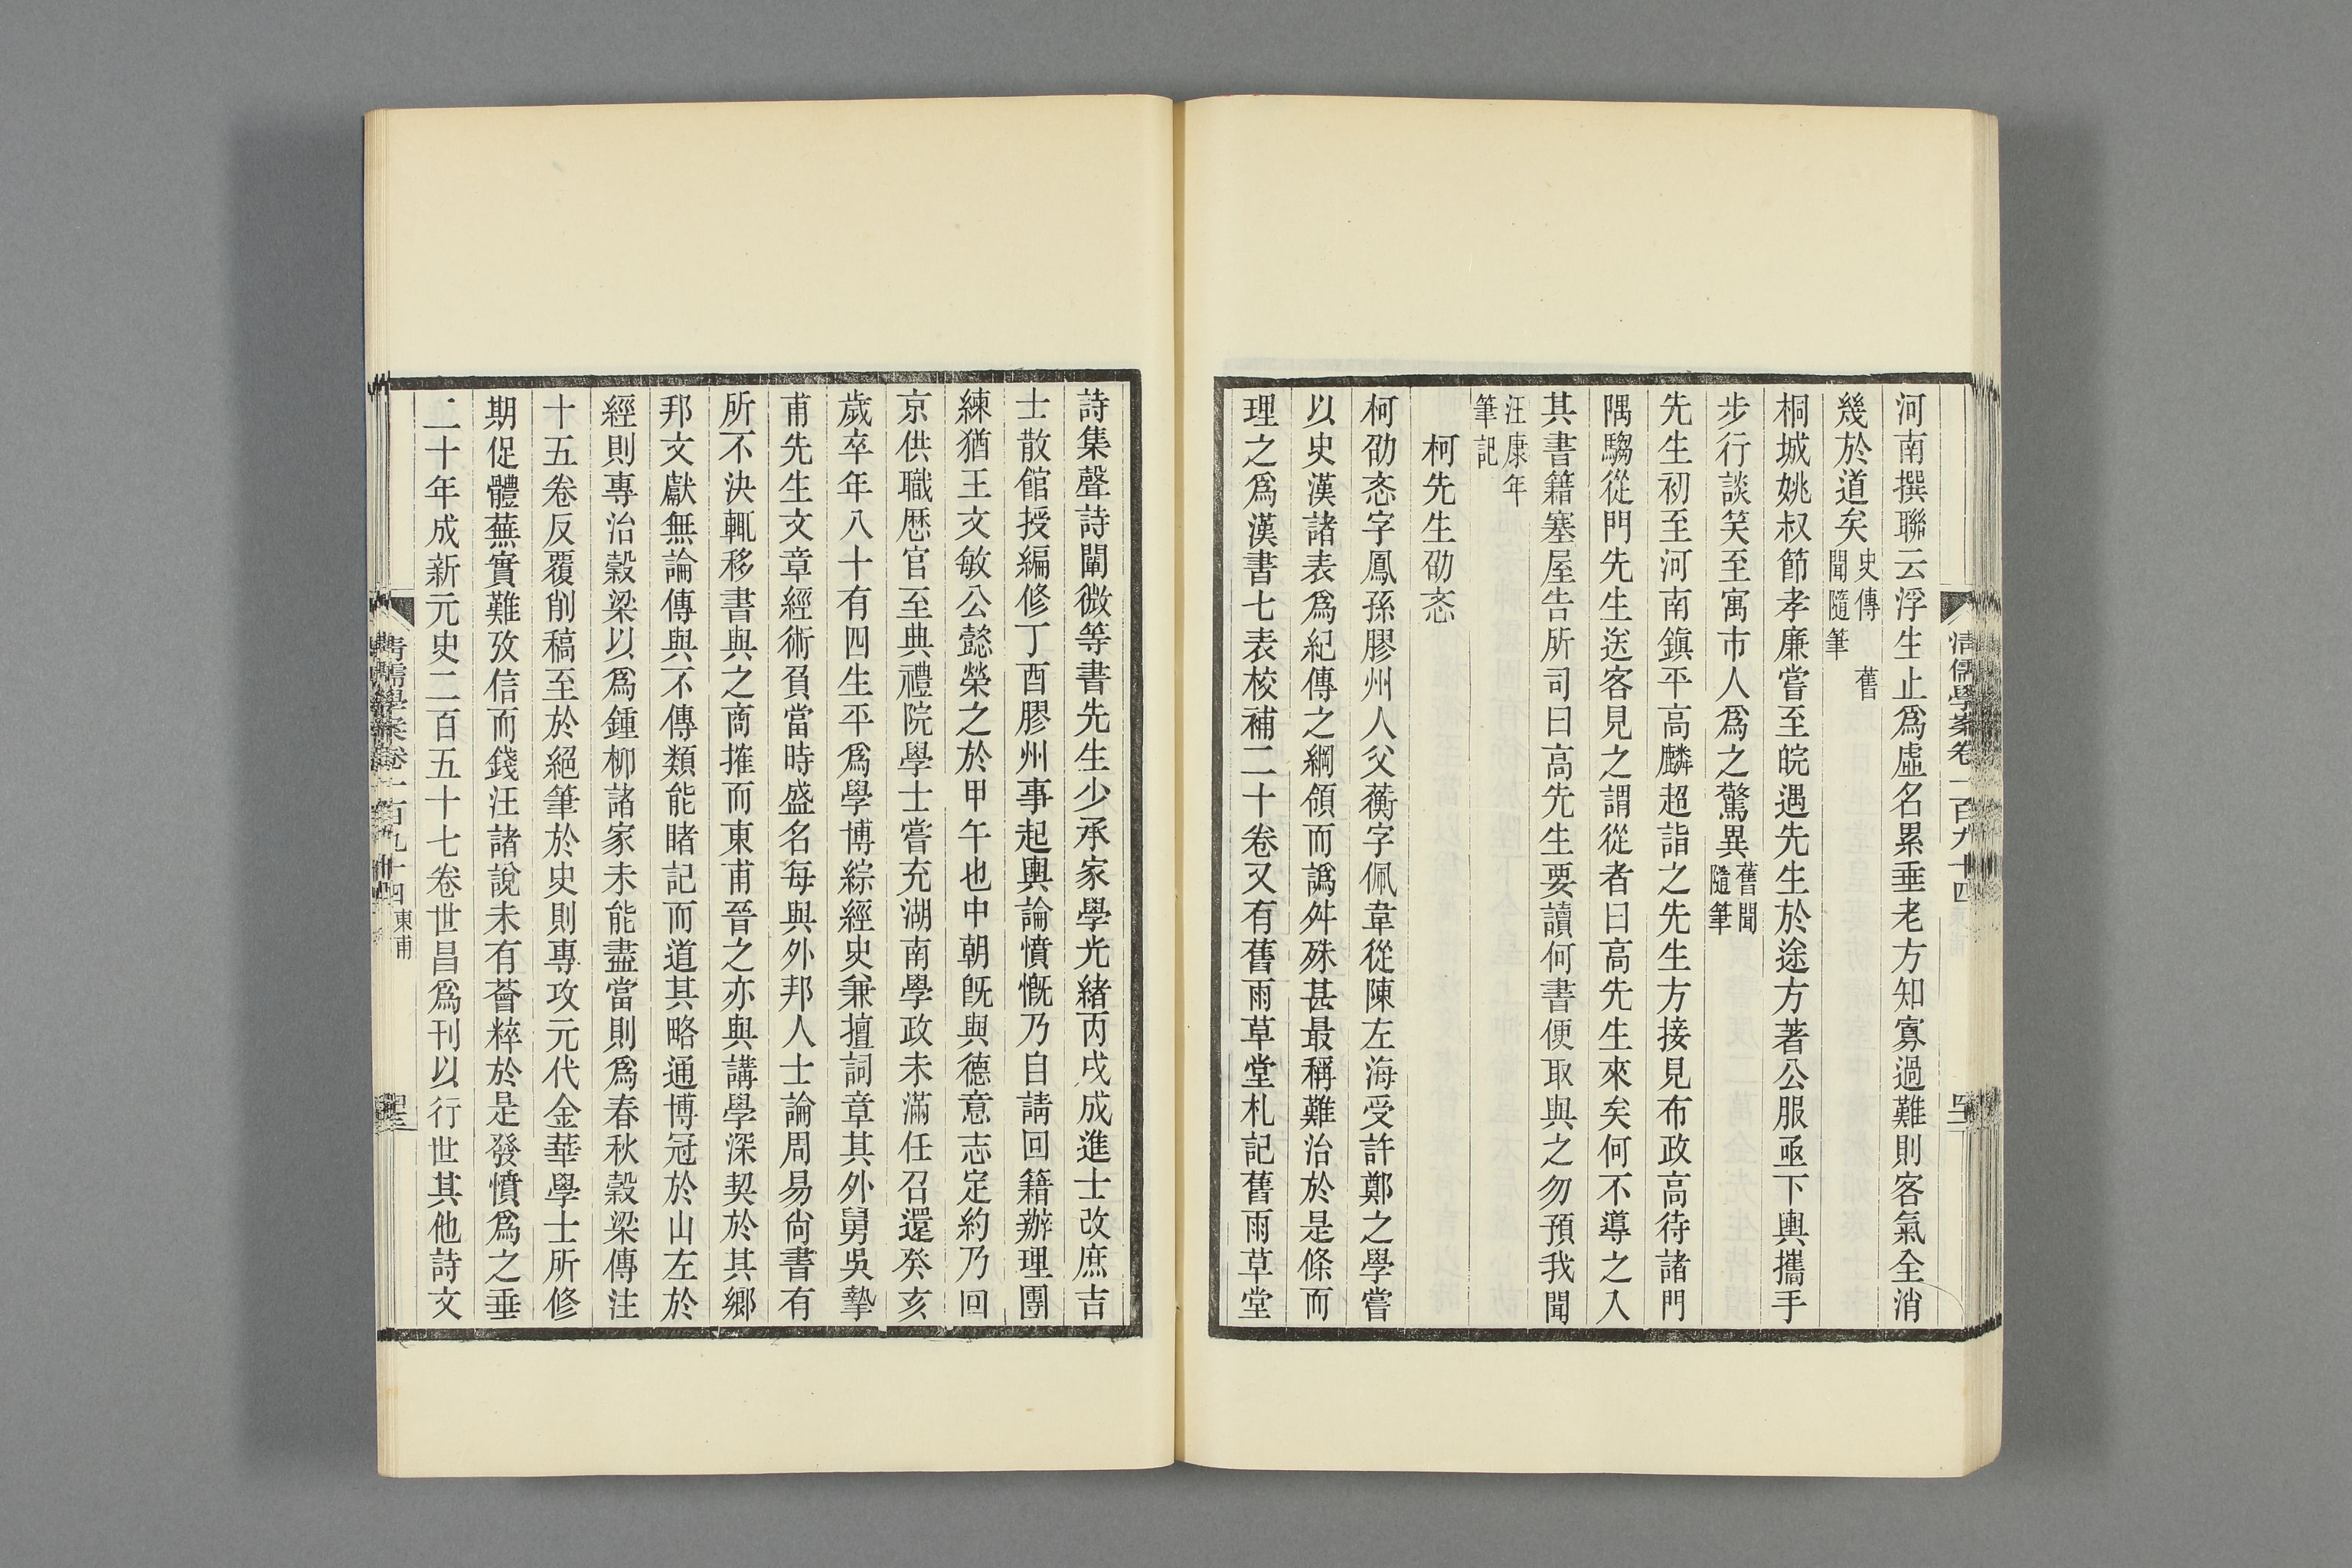 清儒學案卷一百九十四
河南撰聯云浮生止爲虛名累垂老方知寡過難則客氣全消
幾於道矣史傳 舊聞隨筆
桐城姚叔節孝廉嘗至皖遇先生於途方著公服亟下輿攜手
步行談笑至寓市人爲之驚異舊聞隨筆
先生初至河南鎮平高麟超詣之先生方接見布政高待諸門
隅騶從門先生送客見之謂從者曰高先生來矣何不導之入
其書籍塞屋告所司曰高先生要讀何書便取與之勿預我聞
汪康年筆記
柯先生劭忞
柯劭忞字鳳孫膠州人父蘅字佩韋從陳左海受許鄭之學嘗
以史漢諸表爲紀傳之綱領而譌舛殊甚最稱難治於是條而
理之爲漢書七表校補二十卷又有舊雨草堂札記舊雨草堂
詩集聲詩闡微等書先生少承家學光緒丙戌成進士改庶吉
士散館授編修丁酉膠州事起輿論憤慨乃自請回籍辦理團
練猶王文敏公懿榮之於甲午也中朝旣與德意志定約乃回
京供職歷官至典禮院學士嘗充湖南學政未滿任召還癸亥
歲卒年八十有四生平爲學博綜經史兼擅詞章其外舅吳摯
甫先生文章經術負當時盛名每與外邦人士論周易尙書有
所不決輒移書與之商搉而東甫晉之亦與講學深契於其鄉
邦文獻無論傳與不傳類能睹記而道其略通博冠於山左於
經則專治穀梁以爲鍾柳諸家未能盡當則爲春秋穀梁傳注
十五卷反覆削稿至於絕筆於史則專攻元代金華學士所修
期促體蕪實難攷信而錢汪諸說未有薈粹於是發憤爲之垂
二十年成新元史二百五十七卷世昌爲刊以行世其他詩文
清儒學案卷一百九十四 東甫